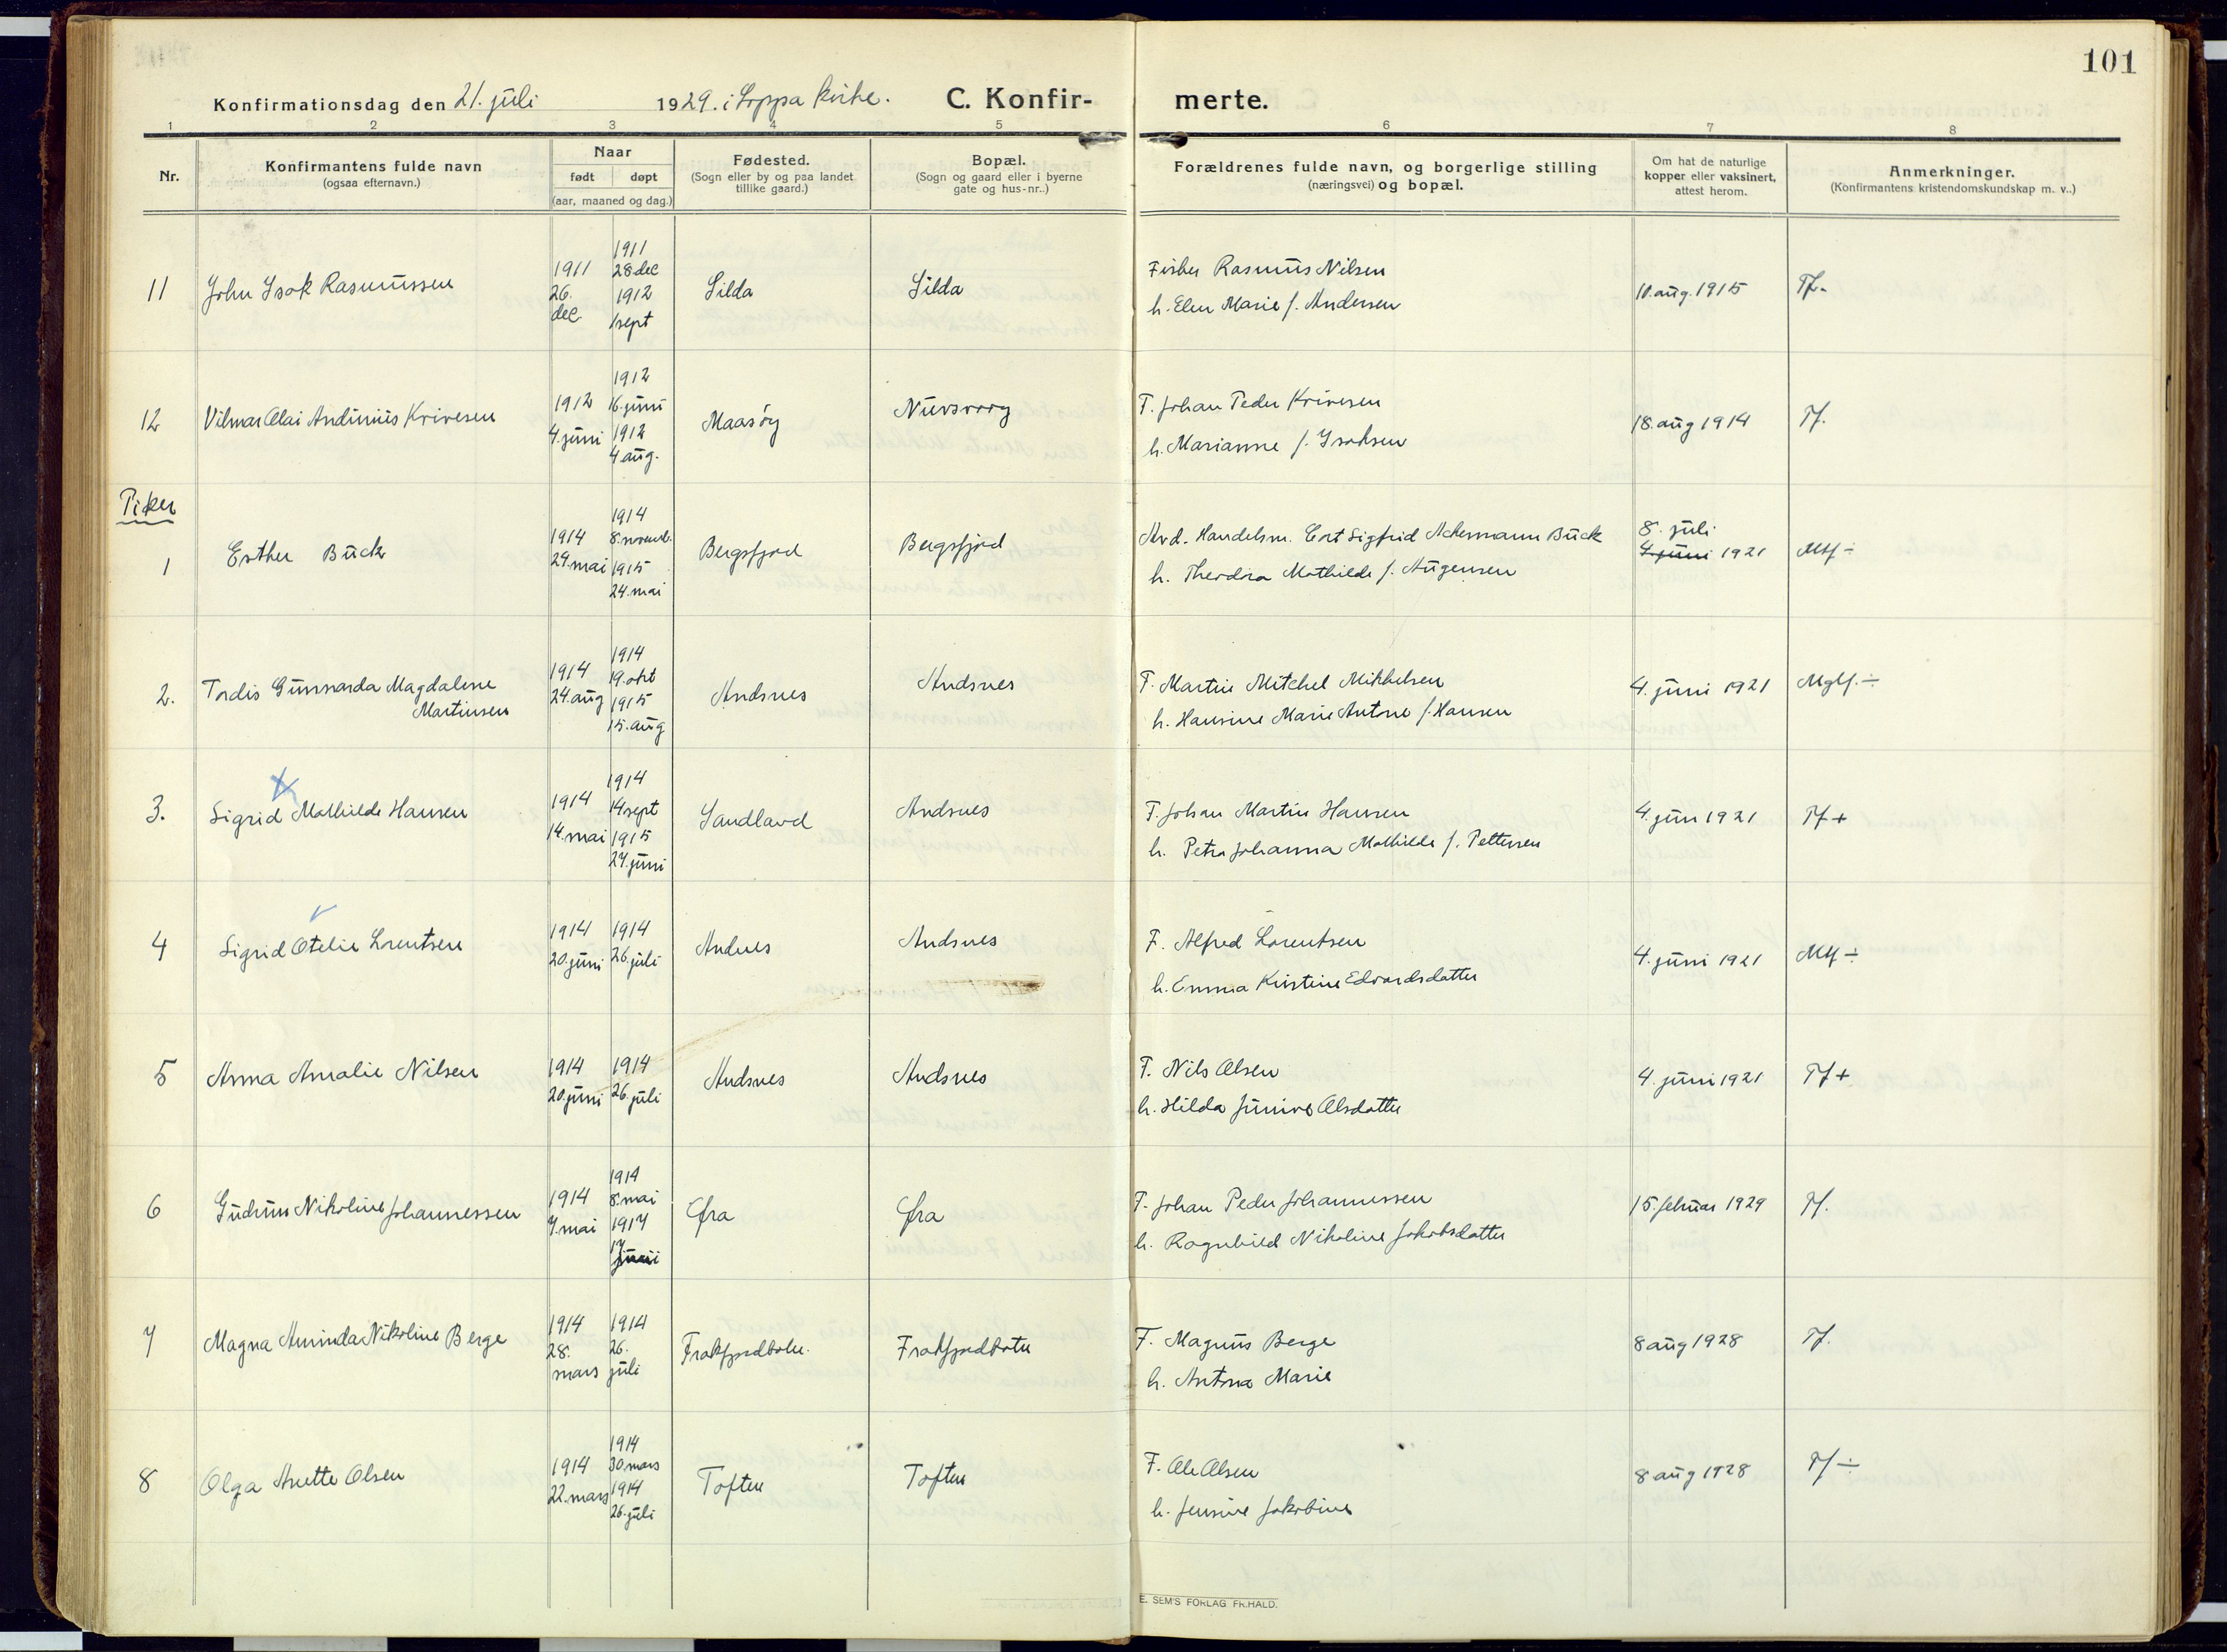 101
Konfirmationsdag den 21. juli 1929. i Loppa kirke. C. Konfir- merte.
1 2 3 4 5 6 7 8
Nr.
Konfirmantens fulde navn
(ogsaa efternavn.)
Naar
født døpt
(aar, maaned og dag.)
Fødested.
(Sogn eller by og paa landet
tillike gaard.)
Bopæl.
(Sogn og gaard eller i byerne
gate og hus-nr..)
Forældrenes fulde navn, og borgerlige stilling
(næringsvei) og bopæl.
Om hat de naturlige
kopper eller vaksinert,
attest herom.
Anmerkninger.
(Konfirmantens kristendomskundskap m. v..)
11
John Isak Rasmussen
1911
26.
dec.
1911
28 dec
1912
1 sept
Silda
Silda
Fisker Rasmus Nilsen
h. Elen Marie f. Andersen
10. aug. 1915
Tf.
12
Vilmar Olai Andinius Krivesen
1912
4. juni
1912
16. juni
1912
4. aug.
Maasøy
Nuvsvaag
F. Johan Peder Krivesen
h. Marianne f. Isaksen
18. aug 1914
Tf.
Piker
1
Esther Buck
1914
29. mai
1914
8. novemb.
1915
24. mai
Bergsfjord
Bergsfjord
Avd. Handelsm. Ert Sigfrid Ackermann Buck
h. Theodora Mathilde f. Augensen
8. juli
4 juni 1921
Mtf ÷
2.
Tordis Gunnarda Magdalene
Martinsen
1914
24. aug
1914
19. okt
1915
15. aug
Andsnes
Andsnes
F. Martin Mitchel Mikkelsen
h. Hansine Marie Antone f. Hansen
4. juni 1921
Mgtf. ÷
3.
Sigrid Mathilde Hansen
1914
14. mai
1914
14 sept
1915
27. juni
Sandland
Andsnes
F. Johan Martin Hansen
h. Petra Johanna Mathilde f. Pettersen
4. jun 1921
Tf +
4
Sigrid Otelie Lorentsen
1914
20. juni
1914
26. juli
Andnes
Andsnes
F. Alfred Lorentsen
h. Emma Kristine Edvardsdatter
4. juni 1921
Mtf ÷
5
Anna Amalie Nilsen
1914
20. juni
1914
26. juli
Andsnes
Andsnes
F. Nils Olsen
h. Hilda Junine Olsdatter
4. juni 1921
Tf +
6
Gudrun Nikoline Johannessen
1914
7. mai
1914
8. mai
1917
17
juni
Øra
Øra
F. Johan Peder Johannessen
h. Ragnhild Nikoline Jakobsdatter
15. februar 1929
Tf.
7
Magna Aminda Nikoline Berge
1914
28.
mars
1914
26.
juli
Frakfjordbotn.
Frakfjordbotn
F. Magnus Berge
h. Antona Marie
8 aug 1928
Tf.
8
Olga Anette Olsen
1914
22. mars
1914
30. mars
1914
26. juli
Toften
Toften
F. Ole Olsen
h. Jensine Jakobine
8 aug 1928
Tf ÷
E. SEM'S FORLAG FR.HALD.